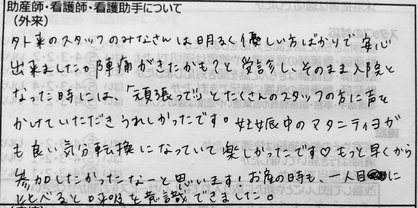 助産師・看護師・看護助手について
（外来）
外来のスタッフのみなさんは明るく優しい方ばかりで安心
出来ました。陣痛がきたかも？と受診し、そのまま入院と
なった時には、「頑張って」とたくさんのスタッフの方に声を
かけていただきうれしかったです。妊娠中のマタニティヨガ
も良い気分転換になっていて楽しかったです♡もっと早くから
参加したかったなーと思います！お産の時も、一人目に
くらべると呼吸を意識できました。